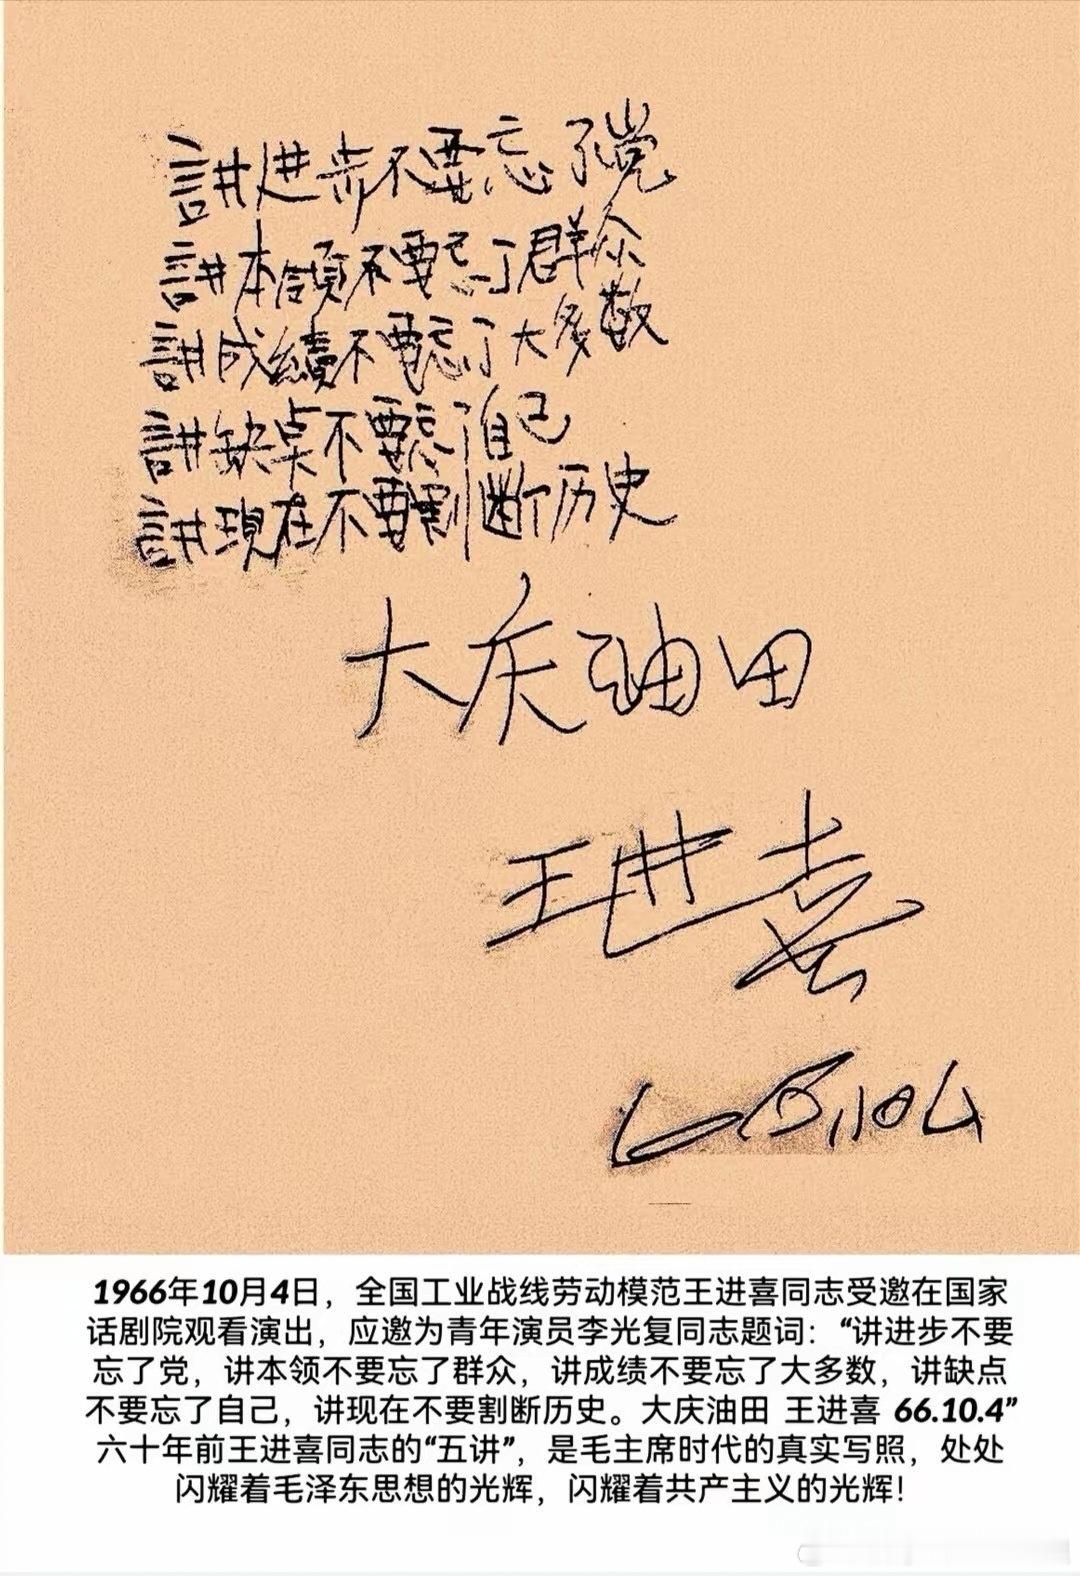 講进步不要忘了党
講本領不要忘了群众
講成績不要忘了大多数
講缺点不要忘了自己
講現在不要割断历史
大庆油田
王进喜
66.10.4
1966年10月4日，全国工业战线劳动模范王进喜同志受邀在国家
话剧院观看演出，应邀为青年演员李光复同志题词：“讲进步不要
忘了党，讲本领不要忘了群众，讲成绩不要忘了大多数，讲缺点
不要忘了自己，讲现在不要割断历史。大庆油田 王进喜 66.10.4”
六十年前王进喜同志的“五讲”，是毛主席时代的真实写照，处处
闪耀着毛泽东思想的光辉，闪耀着共产主义的光辉！